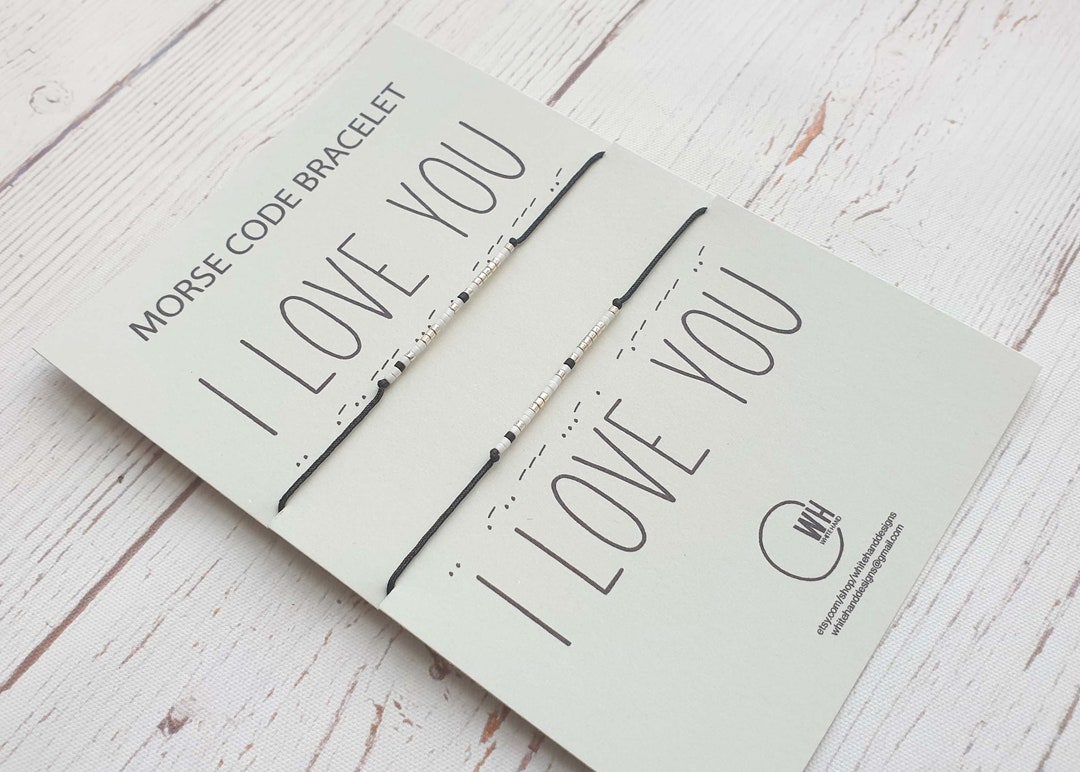 MORSE CODE BRACELET
I LOVE YOU
I LOVE YOU
WH
WHITE HAND
etsy.com/shop/whitehanddesigns
whitehanddesigns@gmail.com